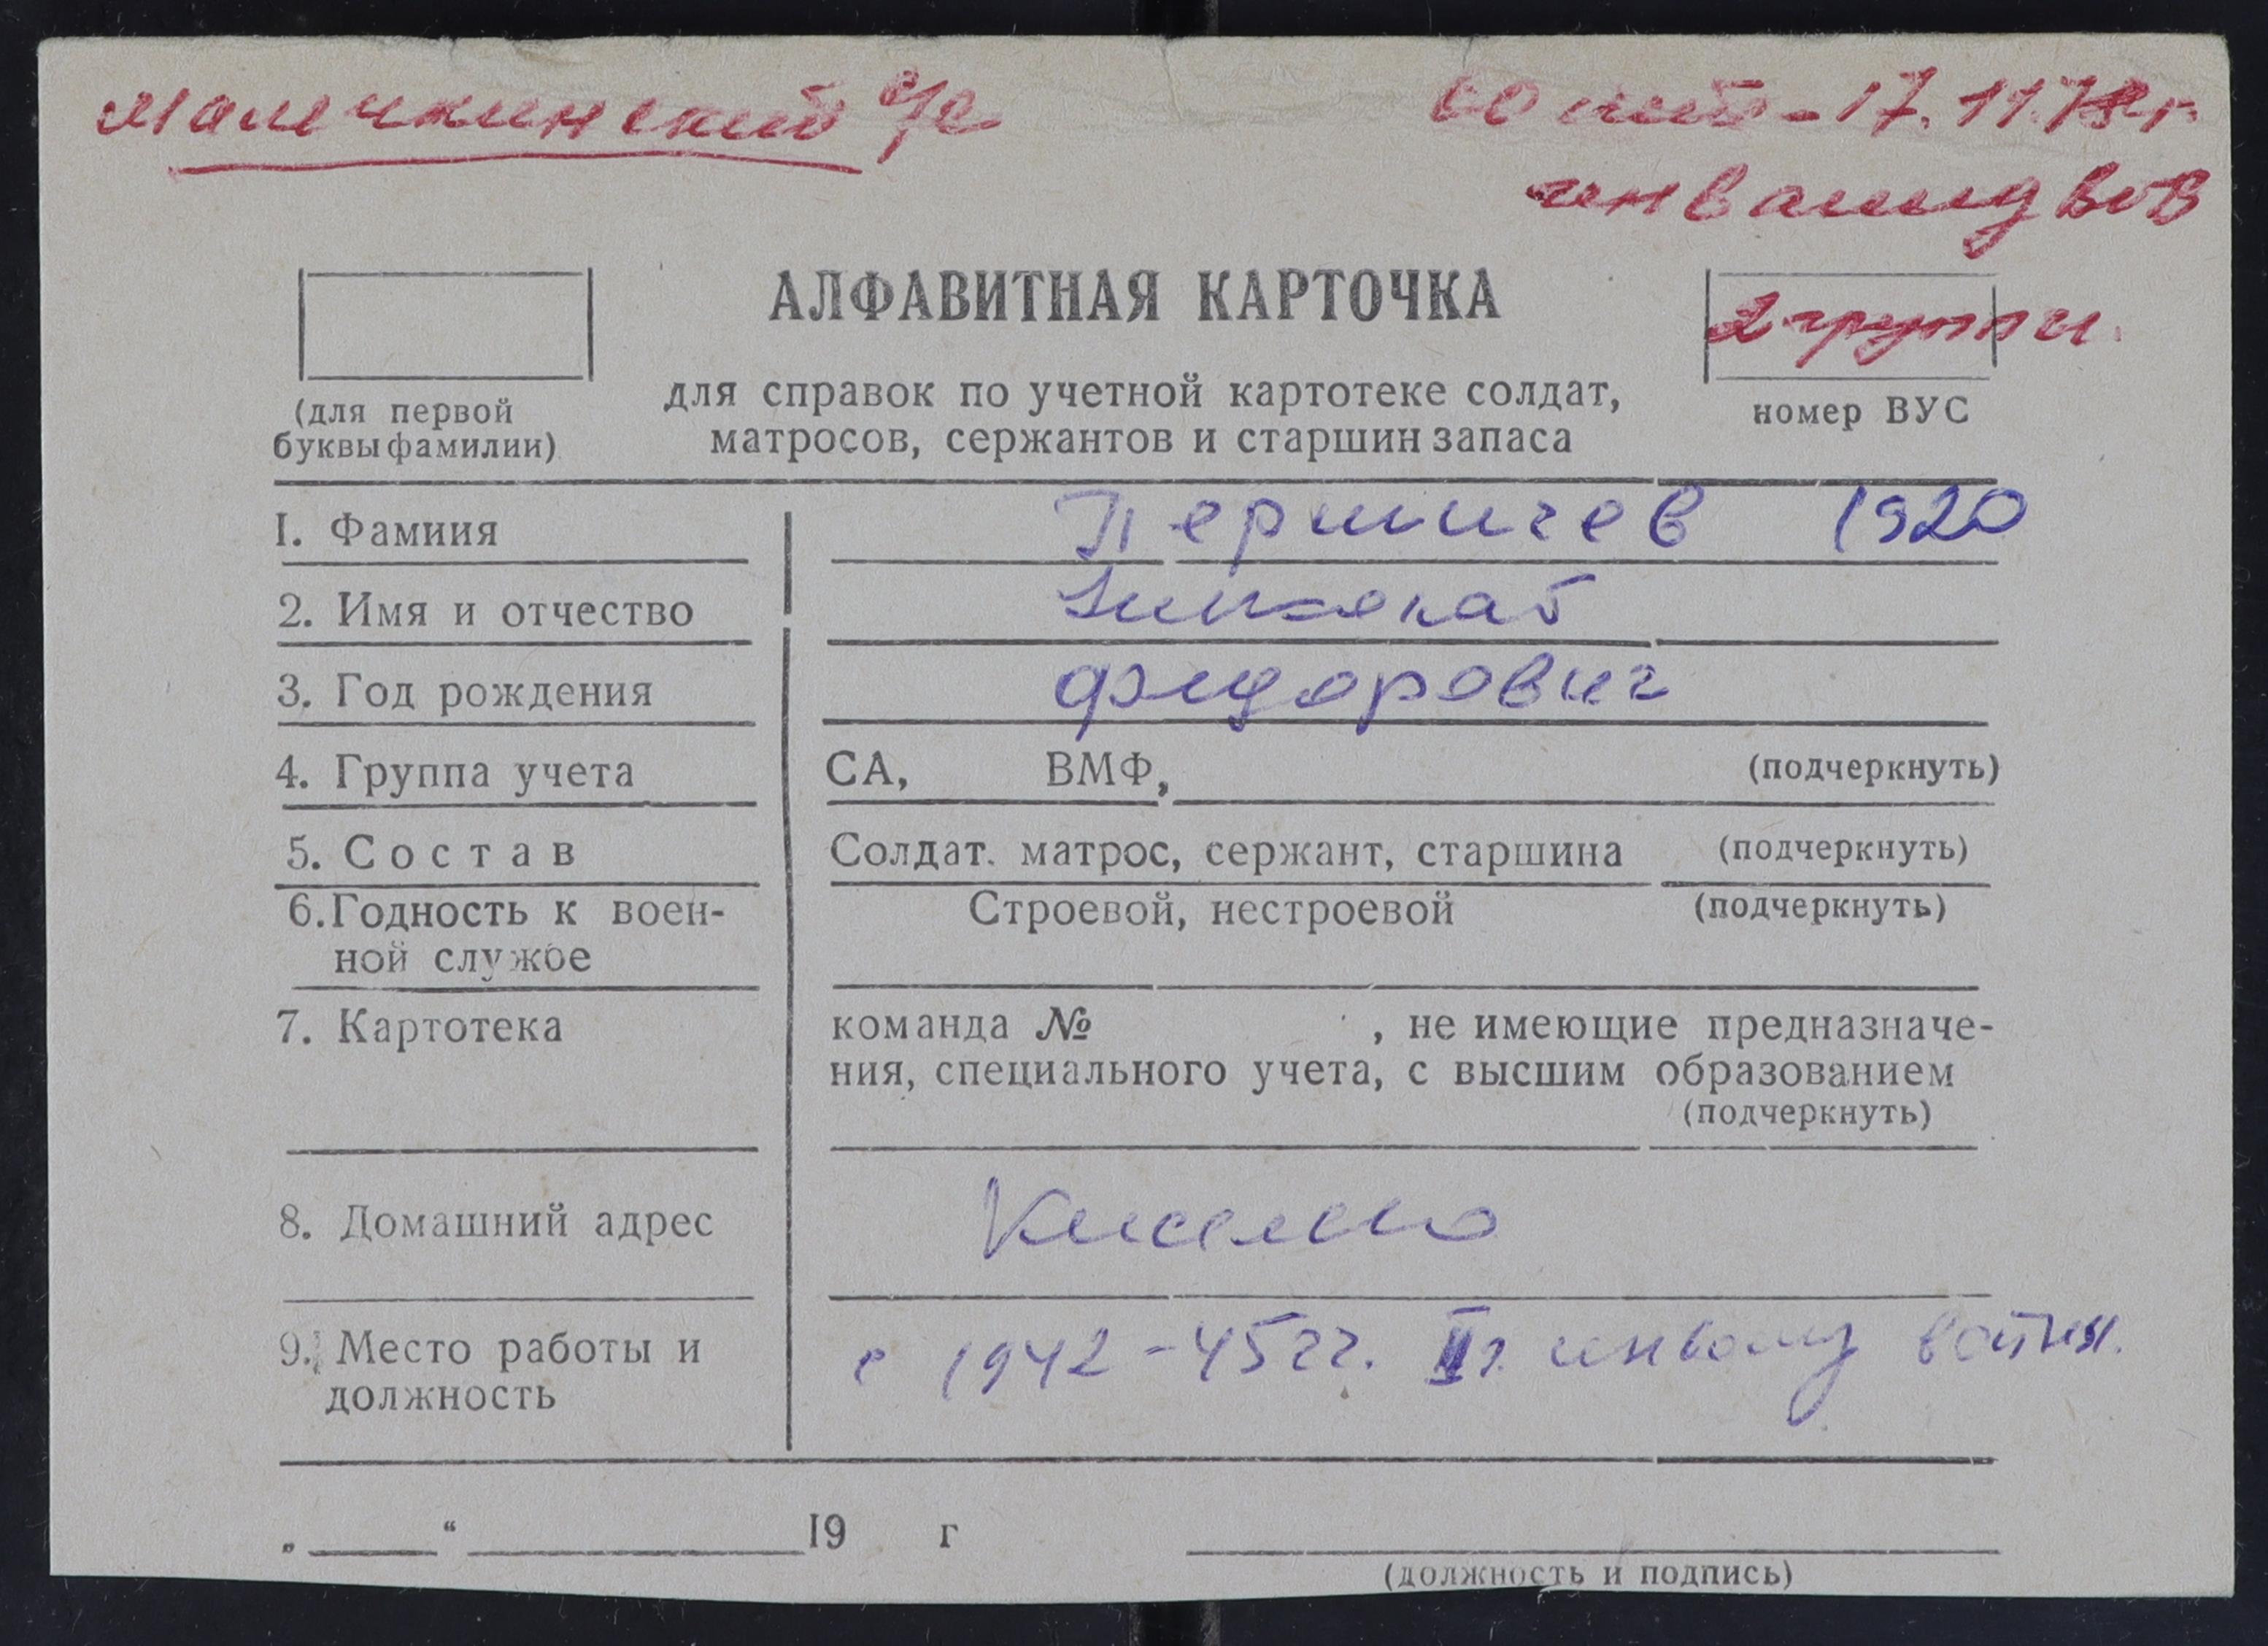 Малечкинский с/с
60 лет - 17.11.78 г.
инвалид ВОВ
АЛФАВИТНАЯ КАРТОЧКА
2 группы.
(для первой
буквы фамилии)
для справок по учетной картотеке солдат,
матросов, сержантов и старшин запаса
номер ВУС
I. Фамиия Першичев 1920
2. Имя и отчество Николай
3. Год рождения Фёдорович
4. Группа учета СА, ВМФ, (подчеркнуть)
5. Состав Солдат. матрос, сержант, старшина (подчеркнуть)
6. Годность к воен- Строевой, нестроевой (подчеркнуть)
ной службе
7. Картотека команда № , не имеющие предназначе-
ния, специального учета, с высшим образованием
(подчеркнуть)
8. Домашний адрес
9. Место работы и с 1942-45 гг. II г. войны.
должность
„ “ 19 г
(должность и подпись)